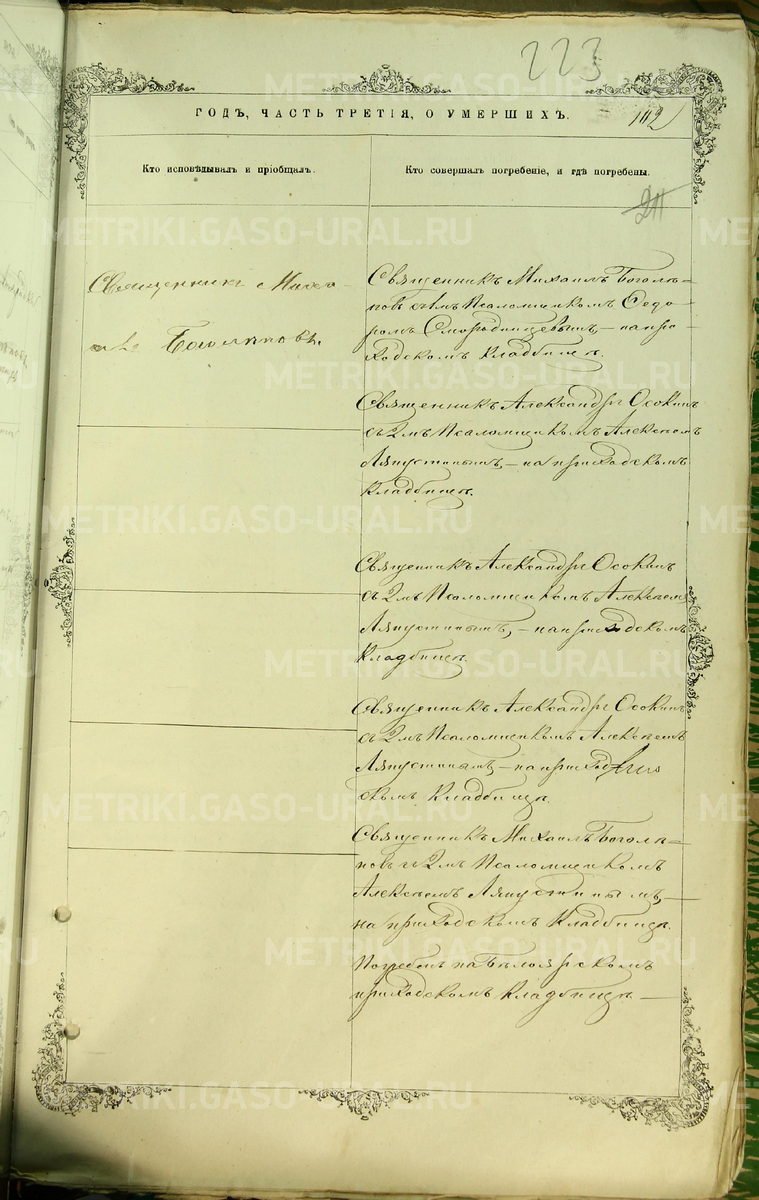 223
ГОДЪ, ЧАСТЬ ТРЕТІЯ, О УМЕРШИХЪ.
112
Кто исповѣдывалъ и пріобщалъ.
Кто совершалъ погребеніе, и гдѣ погребены.
211
Священникъ Михаилъ Боголѣ=
повъ съ 1мъ Псаломщикомъ Ѳедо-
ромъ Смородинцевымъ, — на при-
ходскомъ кладбищѣ.
Священникъ Михаи-
лъ Боголѣповъ.
Священникъ Александръ Осокинъ
съ 2мъ Псаломщикомъ Алексѣемъ
Ляпустинымъ, — на приходскомъ
кладбищѣ.
Священникъ Александръ Осокинъ
съ 2мъ Псаломщикомъ Алексѣемъ
Ляпустинымъ, — на приходскомъ
кладбищѣ.
Священникъ Александръ Осокинъ
съ 2мъ Псаломщикомъ Алексѣемъ
Ляпустинымъ, — на приход
скомъ кладбищѣ.
Священникъ Михаилъ Боголѣ=
повъ съ 2мъ Псаломщикомъ
Алексѣемъ Ляпустинымъ, —
на приходскомъ кладбищѣ.
Погребенъ на Бѣлоярскомъ
приходскомъ кладбищѣ —
METRIKI.GASO-URAL.RU